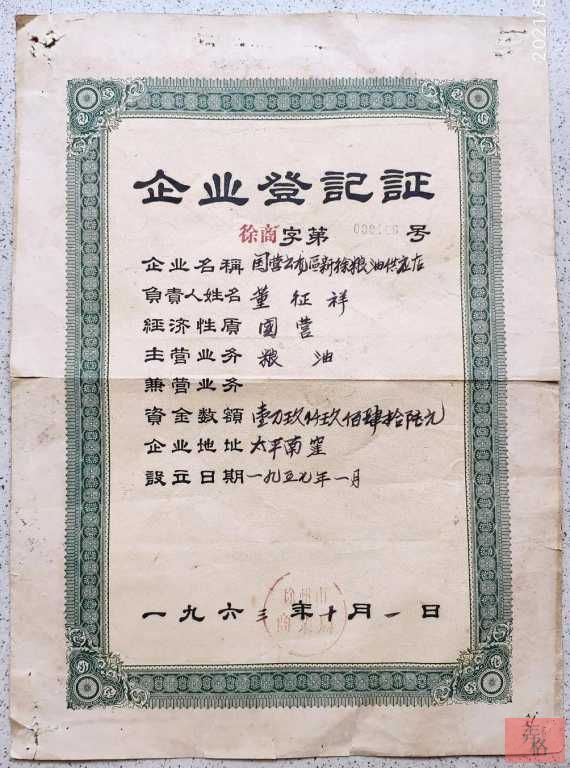 企业登记证
徐商字第 号
企业名稱 国营云龙區新徐粮油供应店
負責人姓名 董征祥
經济性质 國营
主营业务 粮油
兼营业务
資金数額 壹万玖仟玖佰肆拾陆元
企业地址 太平南窑
設立日期 一九五九年一月
一九六三年十月一日
2021/8